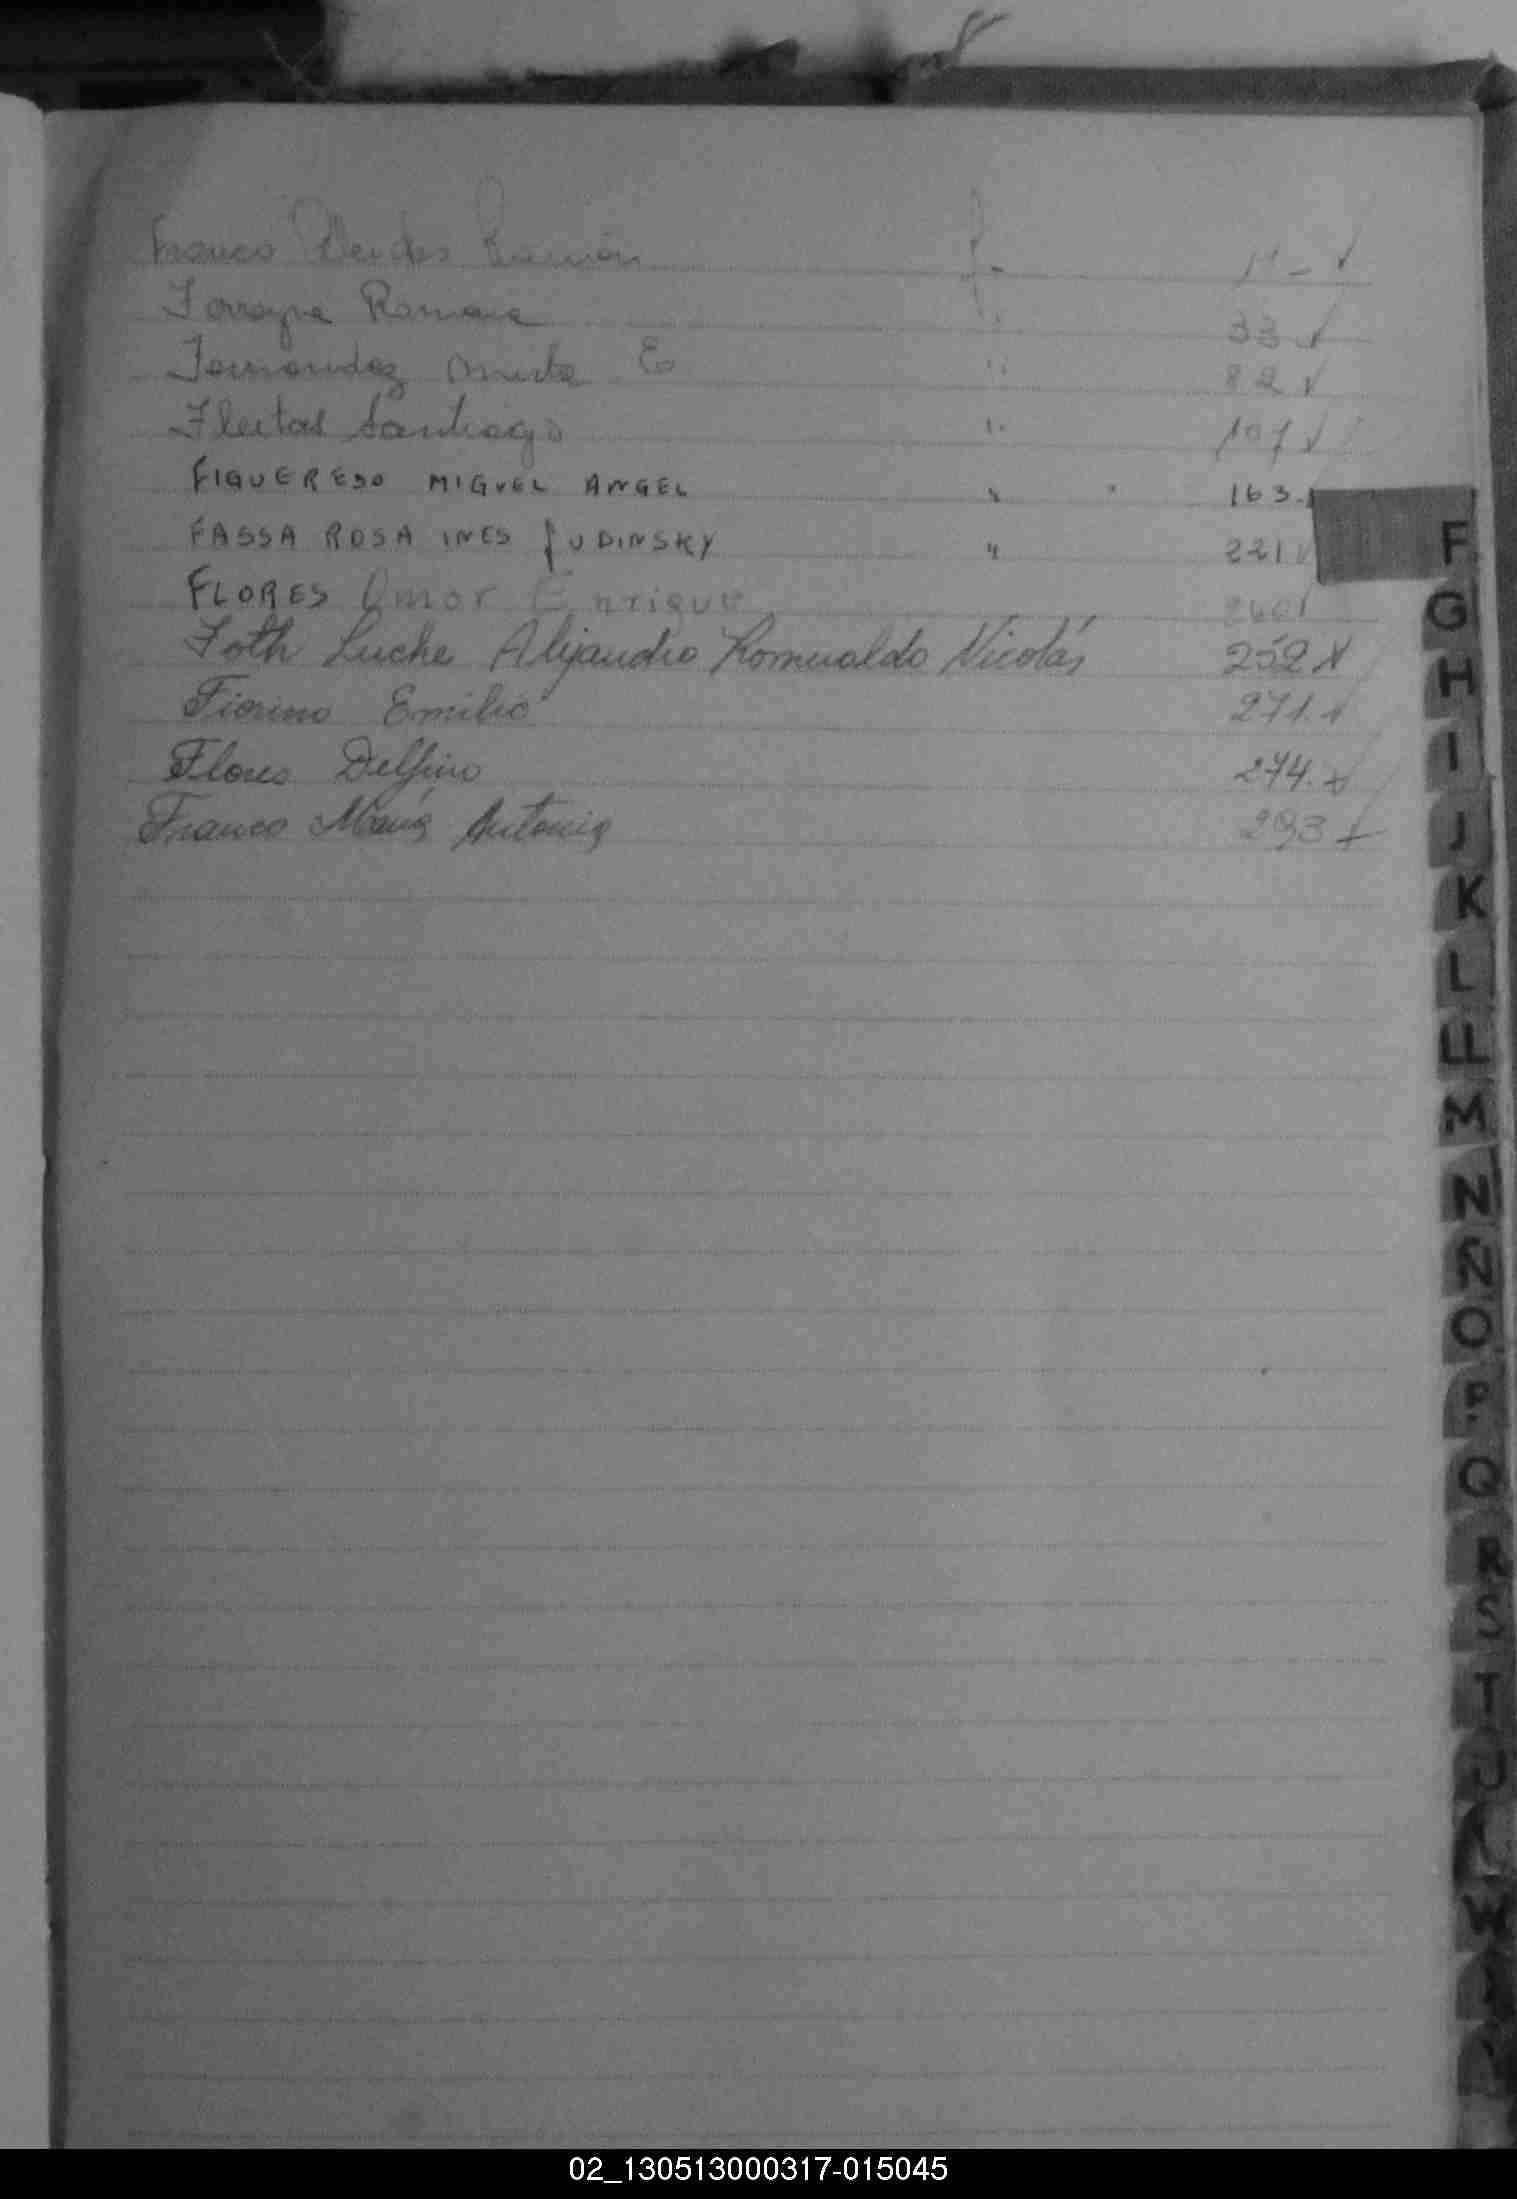 Franco Ramón f. 11 -
Romana " 33
Fernandez E " 82
Fleitas Santiago " 107
FIGUEREDO MIGUEL ANGEL " 163.
FASSA ROSA INES JUDINSKY " 221
FLORES Omar Enrique 240
Foth Luche Alejandro Romualdo Nicolás 252
Fiorino Emilio 271.
Flores Delfino 274.
Franco María Antonia 293
F
G
H
I
J
K
L
LL
M
N
Ñ
O
P
Q
R
S
T
U
W
02_130513000317-015045